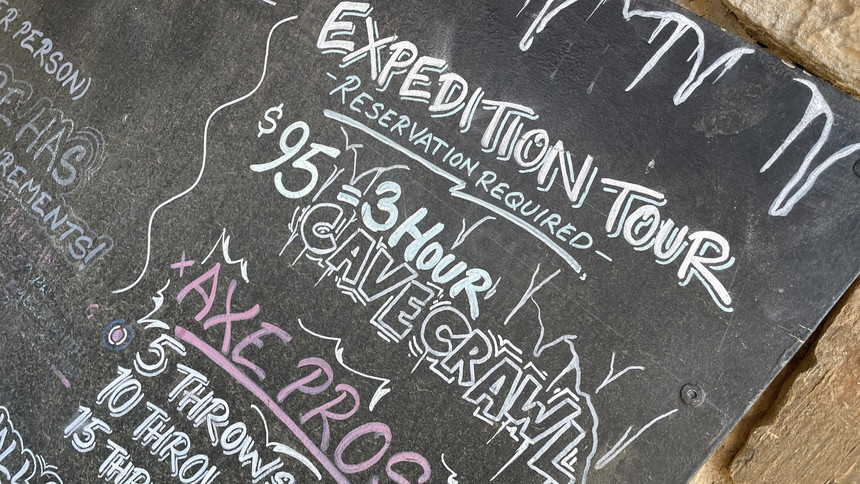 EXPEDITION TOUR
-RESERVATION REQUIRED-
$95 = 3 HOUR
CAVE CRAWL
PERSON)
HAS
*AXE PROS
5 THROWS
10
15